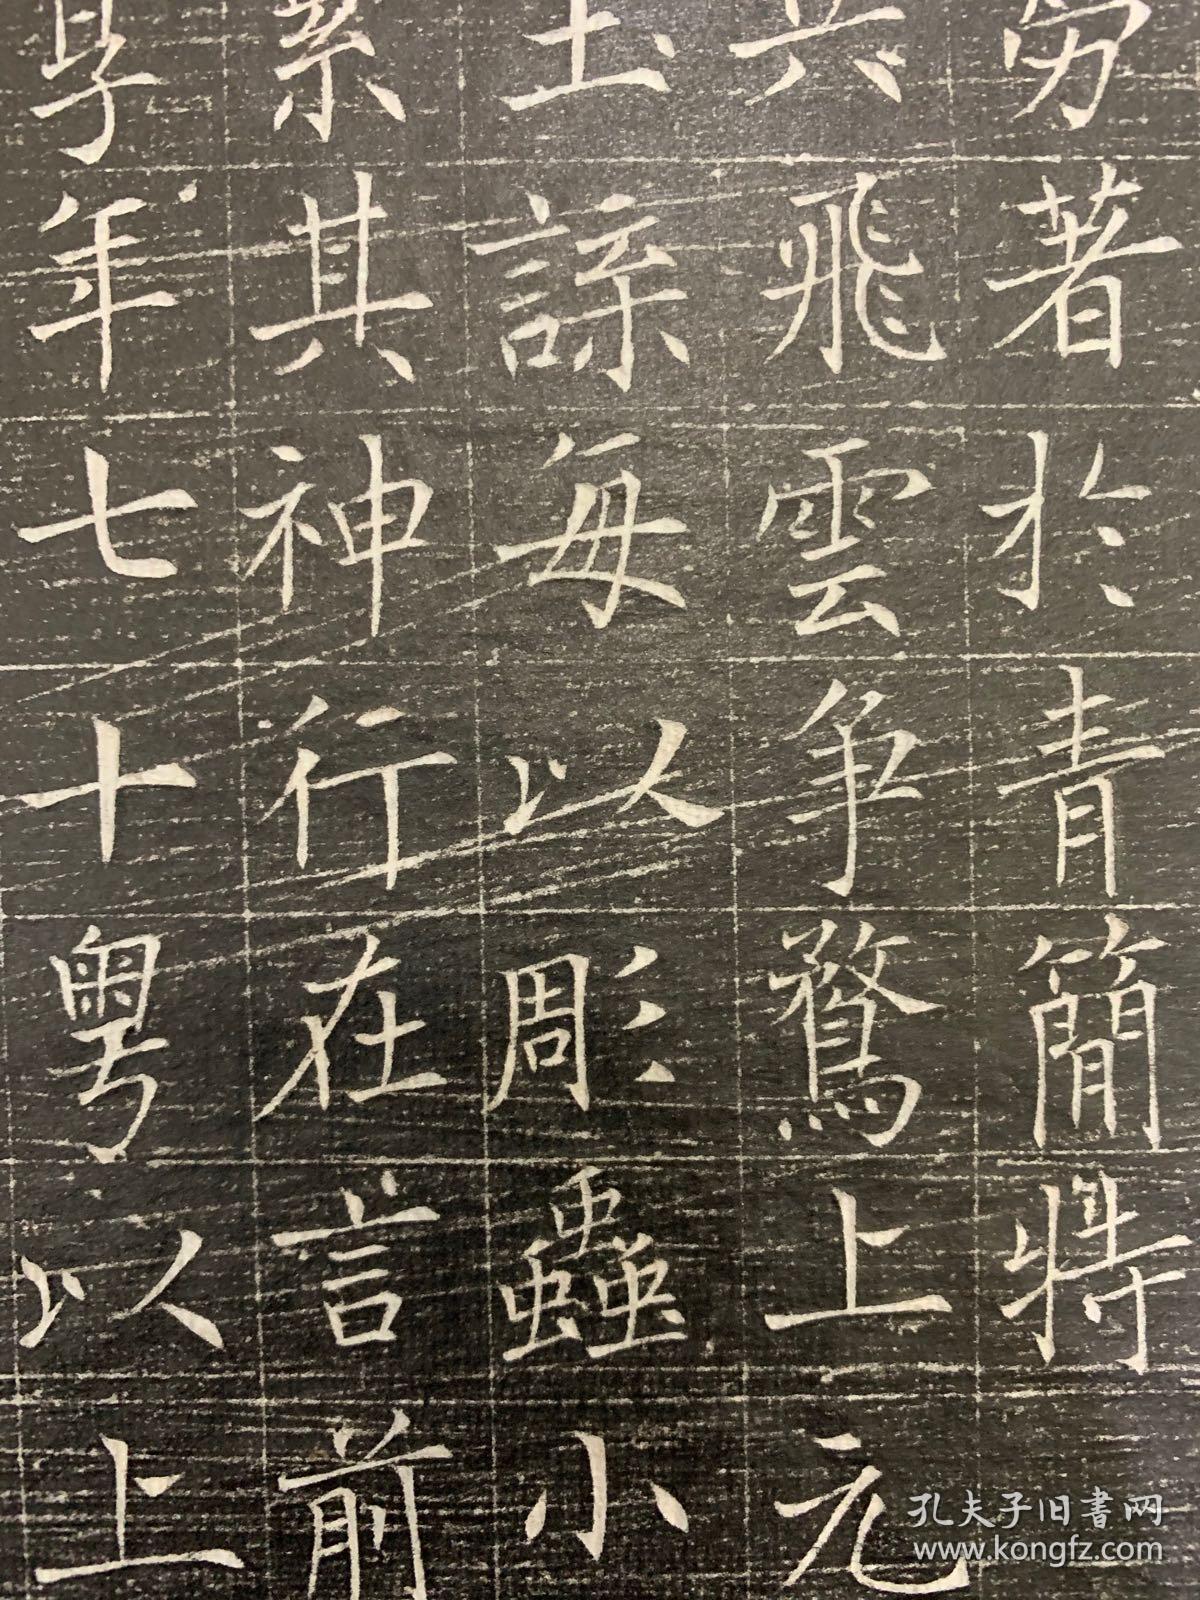 著於青簡將
飛雲爭鶩上元
圡諒每以彫蟲小
其神行在言前
享年七十粤以上
孔夫子旧書网
www.kongfz.com